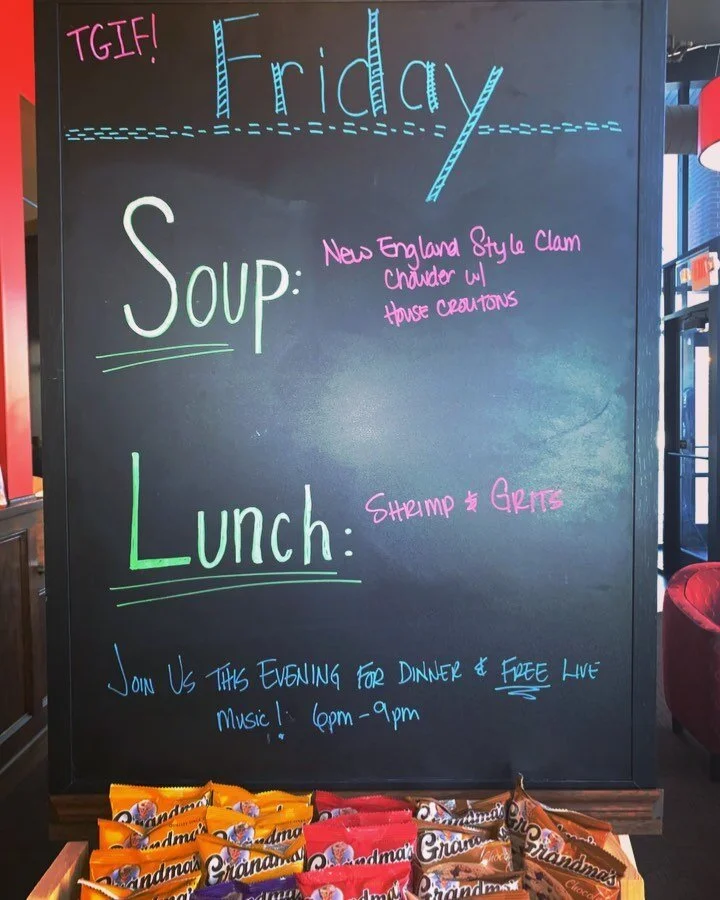 TGIF!
Friday
Soup:
New England Style Clam
Chowder w/
House Croutons
Lunch:
Shrimp & Grits
Join Us This Evening for Dinner & Free Live
Music! 6pm-9pm
Grandma's
Grandma's
Grandma's
Grandma's
Grandma's
Grandma's
Grandma's